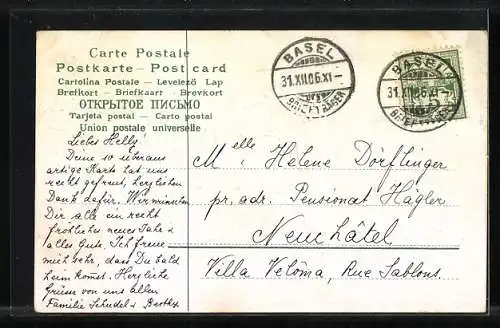 Carte Postale
Postkarte - Post card
Cartolina Postale - Levelező Lap
Brefkort - Briefkaart - Brevkort
ОТКРЫТОЕ ПИСЬМО
Tarjeta postal - Carto postal
Union postale universelle
BASEL
31.XII.06.XI-
BRIEFTRÄGER
BASEL
31.XII.06.XI-
BRIEFTRÄGER
Liebes Helly!
Deine so überaus
artige Karte hat uns
recht gefreut, herzlichen
Dank dafür. Wir wünschen
Dir alle ein recht
fröhliches neues Jahr &
alles Gute. Ich freue
mich sehr, dass Du bald
heim komst. Herzliche
Grüsse von uns allen
Familie Schudel &
Melle Helene Dörflinger
pr. adr. Pensionat Hägler
Neuchâtel
Villa Velôma, Rue Sablons.